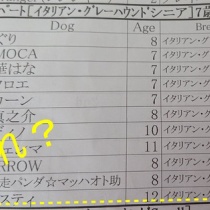 ベート【イタリアン・グレーハウンド・シニア】7歳
Dog Age Bre
ぐり 8 イタリアン・グ
MOCA 7 イタリアン・グ
華はな 7 イタリアン・グ
クロエ 7 イタリアン・グ
コーン 7 イタリアン・グ
真之介 8 イタリアン・グ
ノ 10 イタリアン・グ
マ 11 イタリアン・グ
RROW 8 イタリアン・グ
走パンダ☆マッハオト助 8 イタリアン・グ
スティ 12 イタリアン・グ
れ?